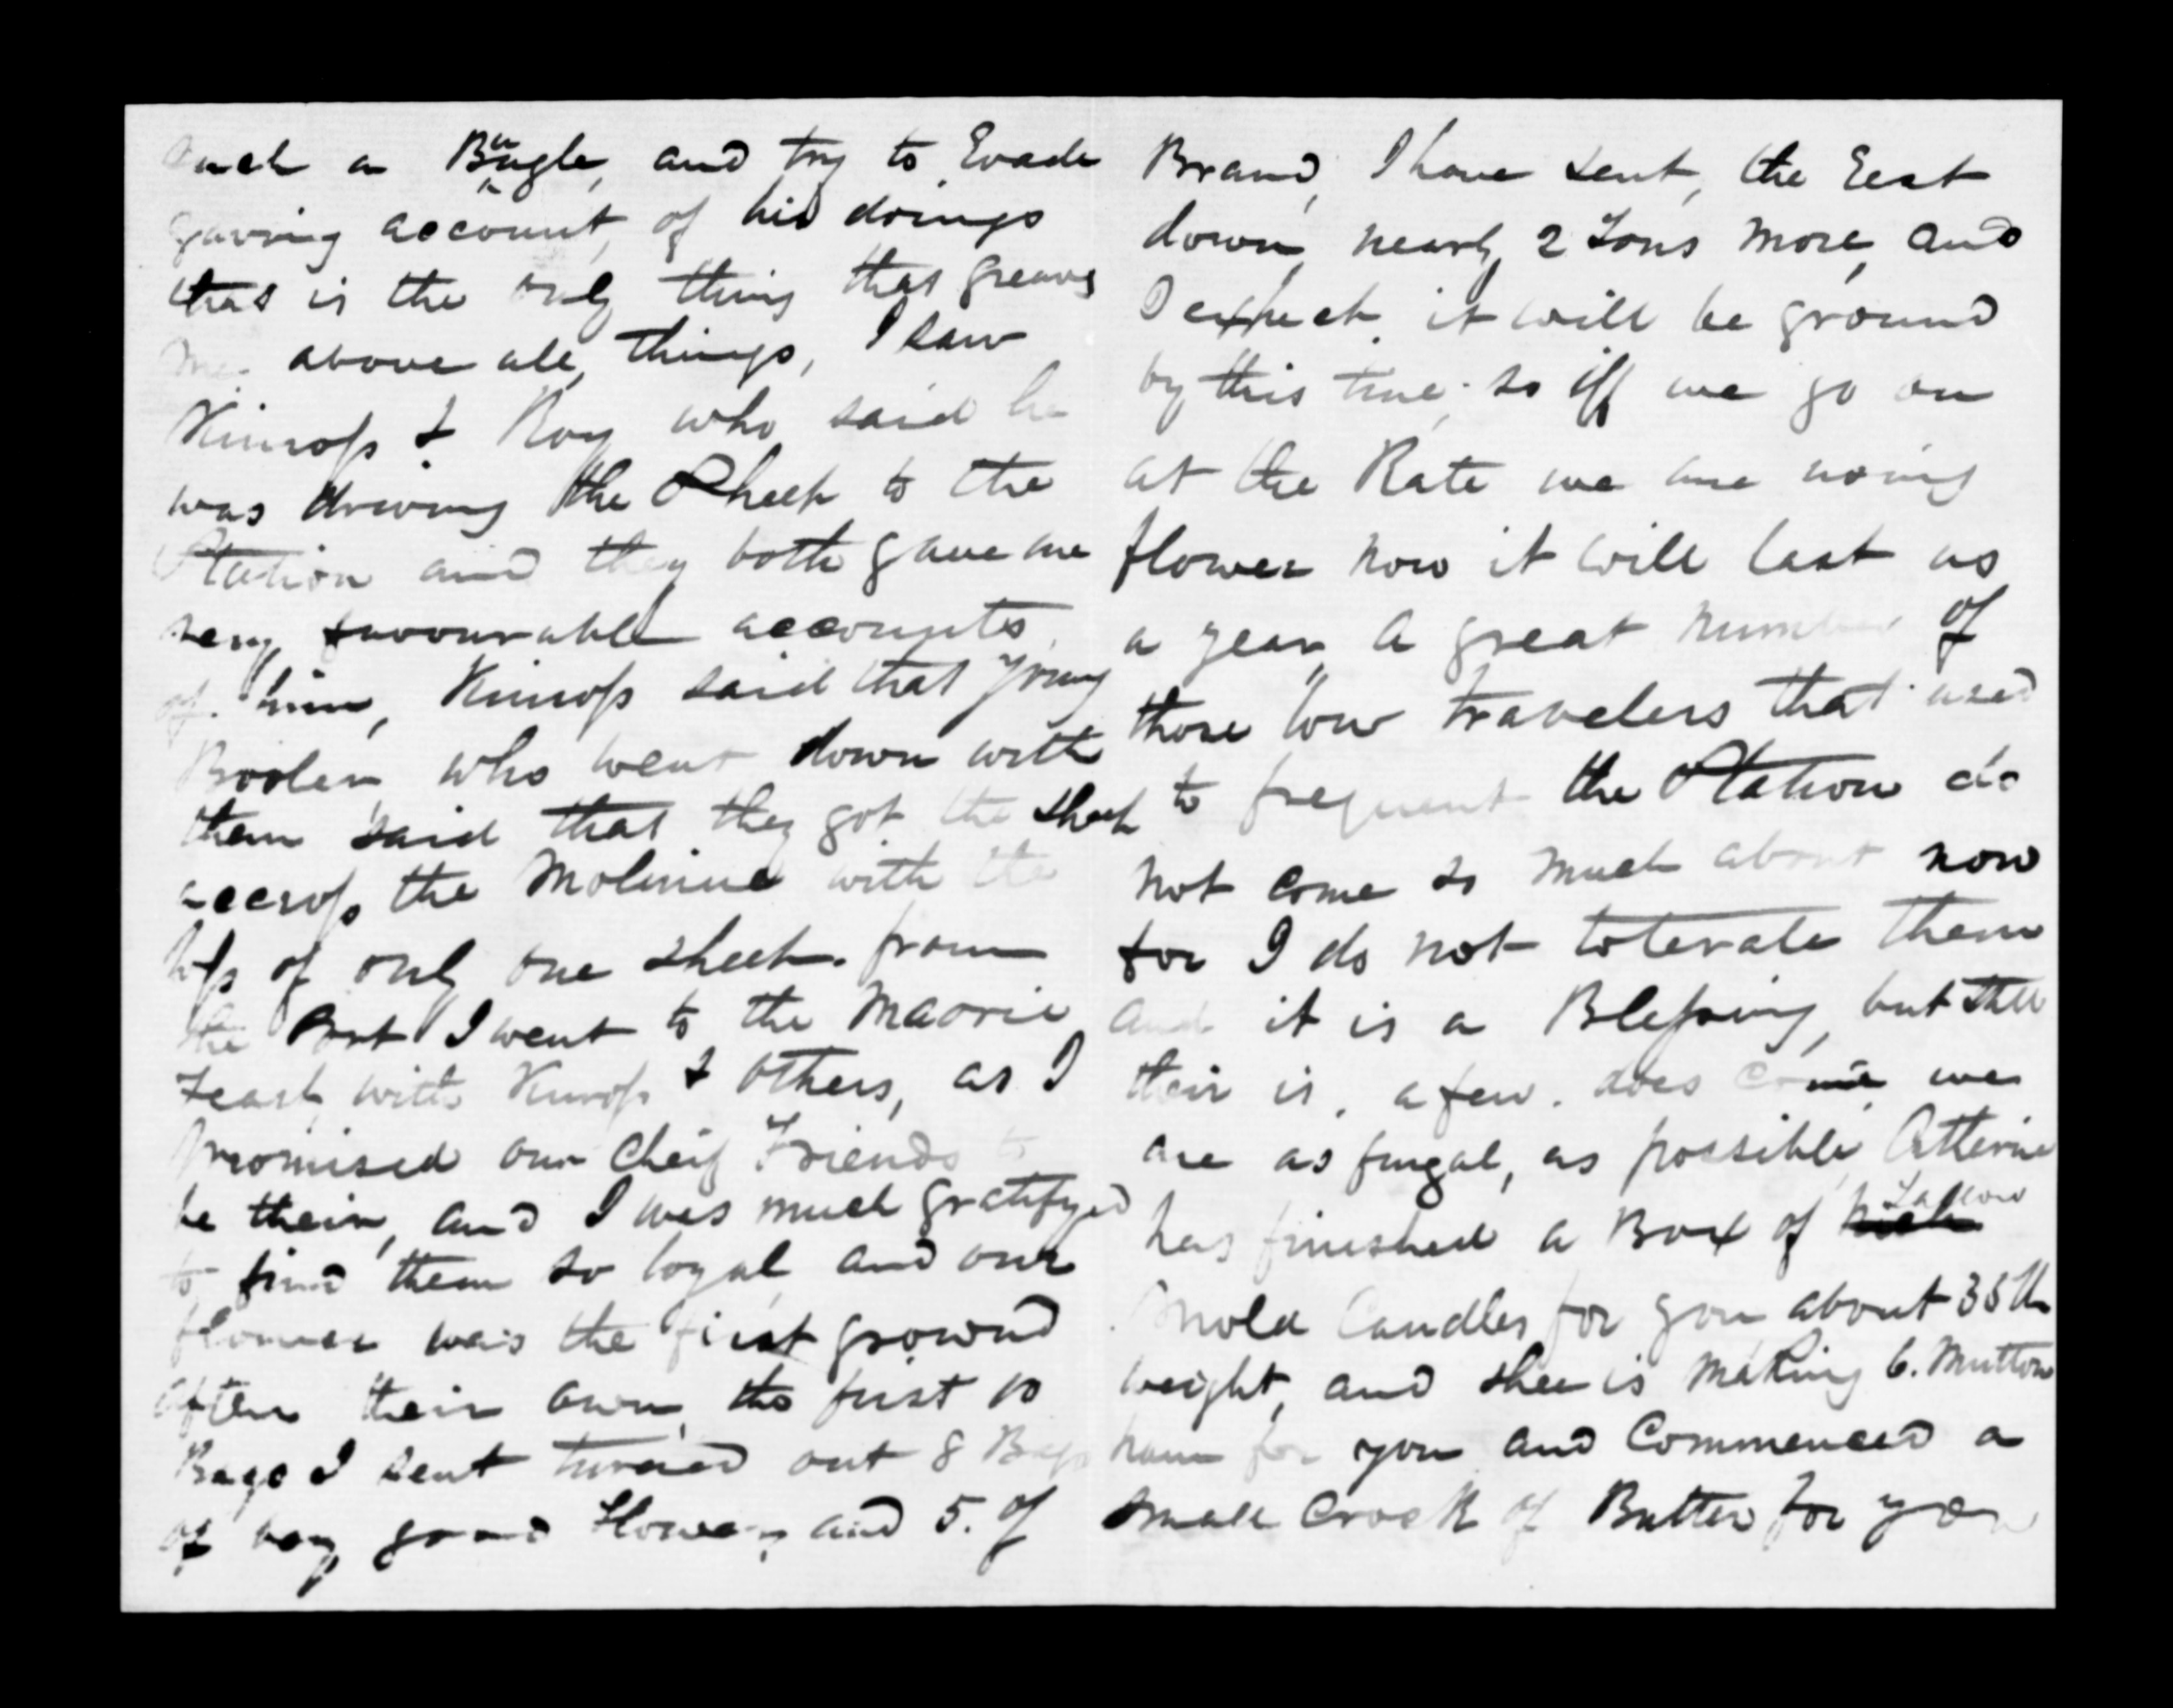 such a Bugle, and try to Evade
gaving account, of his doings
that is the only thing that greaves
me above all, things, I saw
Kinross & Roy who said he
was driving the Sheep to the
Station and they both gave me
very favourable accounts
of him, Kinross said that young
who went down with
them said that they got the sheep
accross the with the
loss of only one sheep. from
the Port I went to the Maorie
feast, with Kinross & others, as I
promised our Cheif Friends to
be their, and I was much gratifyed
to find them so loyal and our
flower was the first ground
after their own, the first 10
Bags I sent turned out 8 Bags
of very good flower, and 5. of
Brand, I have sent, the Rest
down, nearly 2 Tons more, and
I expect it will be ground
by this time, so iff we go on
at the Rate we are using
flower now it will last us
a year, A great number of
those low travelers that used
to frequent the Station do
not come so much about now
for I do not tolerate them
and it is a Blessing, but still
their is, a few. does come, we
are as frugal, as possible, Catherine
has finished a Box of Tallow
Mold Candles for you about 35 lb
weight, and shee is making 6. Mutton
ham for you and Commenced a
small Crock of Butter for you